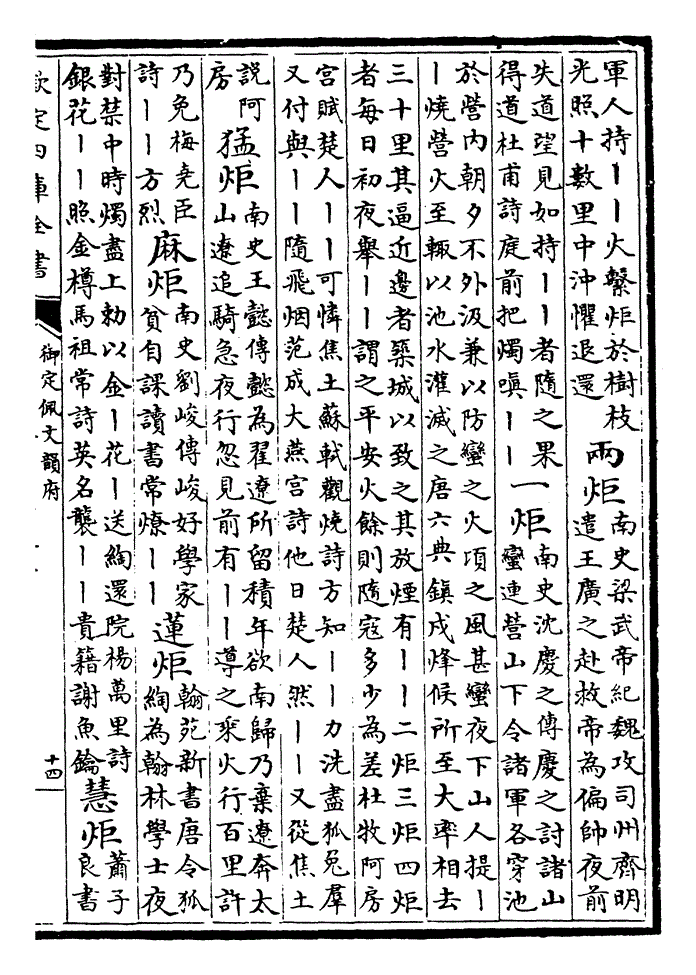 軍人持丨丨火繫炬於樹枝
光照十數里中沖懼退還
兩炬
南史梁武帝紀魏攻司州齊明
遣王廣之赴救帝為偏帥夜前
失道望見如持丨丨者隨之果
得道杜甫詩庭前把燭嗔丨丨
一炬
南史沈慶之傳慶之討諸山
蠻連營山下令諸軍各穿池
於營内朝夕不外汲兼以防蠻之火頃之風甚蠻夜下山人提丨
丨燒營火至輒以池水灌滅之唐六典鎮戍烽候所至大率相去
三十里其逼近邊者築城以致之其放煙有丨丨二炬三炬四炬
者每日初夜舉丨丨謂之平安火餘則隨寇多少為差杜牧阿房
宮賦楚人丨丨可憐焦土蘇軾觀燒詩方知丨丨力洗盡狐兔羣
又付與丨丨隨飛烟范成大燕宮詩他日楚人然丨丨又從焦土
說阿
房
猛炬
南史王懿傳懿為翟遼所留積年欲南歸乃棄遼奔太
山遼追騎急夜行忽見前有丨丨導之乘火行百里許
乃免梅堯臣
詩丨丨方烈
麻炬
南史劉峻傳峻好學家
貧自課讀書常燎丨丨
蓮炬
翰苑新書唐令狐
綯為翰林學士夜
對禁中時燭盡上勅以金丨花丨送綯還院楊萬里詩
銀花丨丨照金樽馬祖常詩英名襲丨丨貴籍謝魚鑰
慧炬
蕭子
良書
欽定四庫全書
御定佩文韻府
十四